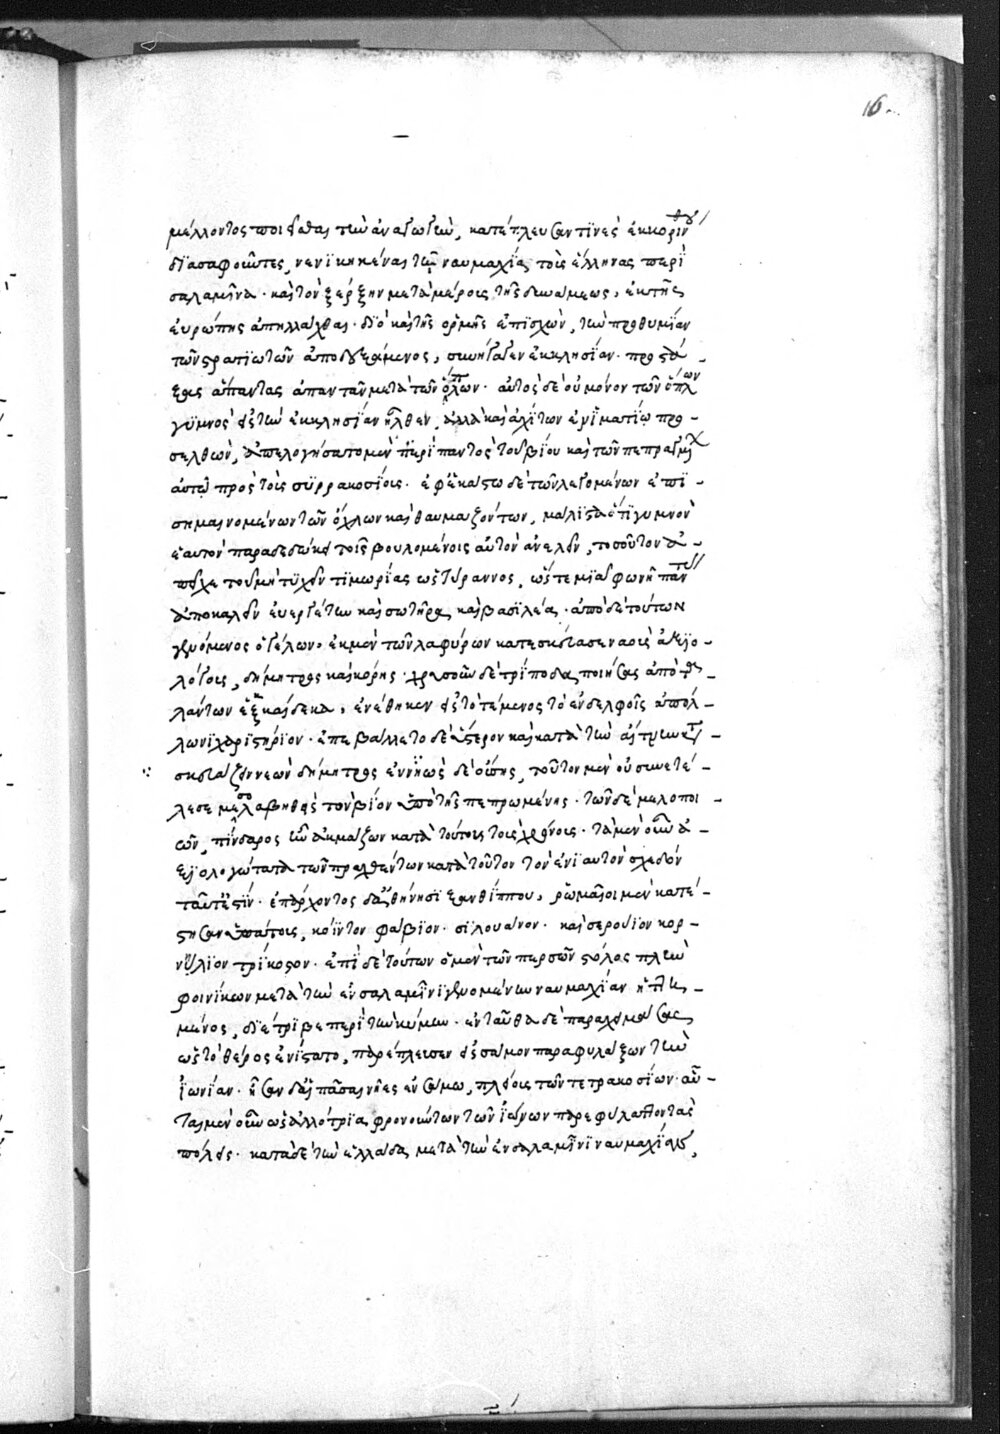 16
μέλλοντος ποιεῖσθαι τὴν ἀναγωγὴν, κατέπλευσάν τινὲς ἐκ κορίνθου
διασαφοῦντες, νενικηκέναι τῇ ναυμαχίᾳ τοὺς ἕλληνας περὶ
σαλαμῖνα · καὶ τὸν ξέρξην μετὰ μέρους τῆς δυνάμεως, ἐκ τῆς
εὐρώπης ἀπηλλάχθαι · διὸ καὶ τῆς ὁρμῆς ἐπισχὼν, τὴν προθυμίαν
τῶν στρατιωτῶν ἀποδεξάμενος, συνήγαγεν ἐκκλησίαν · προστά-
ξας ἅπαντας ἀπαντᾶν μετὰ τῶν ὅπλων · αὐτὸς δὲ οὐ μόνον τῶν ὅπλων
γυμνὸς εἰς τὴν ἐκκλησίαν ἦλθεν, ἀλλὰ καὶ ἀχίτων ἐν ἱματίῳ προ-
σελθὼν, ἀπελογήσατο μὲν περὶ παντὸς τοῦ βίου καὶ τῶν πεπραγμένων
αὐτῷ πρὸς τοὺς συρρακοσίους · ἐφ' ἑκάστῳ δὲ τῶν λεγομένων ἐπι-
σημαινομένων τῶν ὄχλων καὶ θαυμαζόντων, μάλιστα ὅτι γυμνὸν
ἑαυτὸν παραδεδώκει τοῖς βουλομένοις αὐτὸν ἀνελεῖν, τοσοῦτον ἀ-
πεῖχε τοῦ μὴ τυχεῖν τιμωρίας ὡς τύραννος, ὥστε μιᾷ φωνῇ πάντας
ἀποκαλεῖν εὐεργέτην καὶ σωτῆρα καὶ βασιλέα · ἀπὸ δὲ τούτων
γενόμενος ὁ γέλων, ἐκ μὲν τῶν λαφύρων κατεσκεύασε ναοὺς ἀξιο-
λόγους, δήμητρος καὶ κόρης · χρυσοῦν δὲ τρίποδα ποιήσας ἀπὸ τα-
λάντων ἑξκαίδεκα, ἀνέθηκεν εἰς τὸ τέμενος τὸ ἐν δελφοῖς ἀπόλ-
λωνι χαριστήριον · ἐπεβάλλετο δὲ ὕστερον καὶ κατὰ τὴν αἴτνην κατα-
σκευάζειν νεὼν δήμητρος ἐννηὼς δὲ οὔσης, τοῦτον μὲν οὐ συνετέ-
λεσε μεσολαβηθεὶς τὸν βίον ὑπὸ τῆς πεπρωμένης · τῶν δὲ μελοποι-
ῶν, πίνδαρος ἦν ἀκμάζων κατὰ τούτους τοὺς χρόνους · τὰ μὲν οὖν ἀ-
ξιολογώτατα τῶν πραχθέντων κατὰ τοῦτον τὸν ἐνιαυτὸν σχεδόν
ταῦτ' ἐστίν · ἐπ' ἄρχοντος δ' ἀθήνησι ξανθίππου, ῥωμαῖοι μὲν κατέ-
στησαν ὑπάτους, κόϊντον φάβιον · σιλουανόν · καὶ σερούϊον κορ-
νήλιον τρίκοστον · ἐπὶ δὲ τούτων ὁ μὲν τῶν περσῶν στόλος πλὴν
φοινίκων μετὰ τὴν ἐν σαλαμῖνι γενομένην ναυμαχίαν ἡττη-
μένος, διέτριβε περὶ τὴν κύμην · ἐνταῦθα δὲ παραχειμάσας
ὡς τὸ θέρος ἐνίστατο, παρέπλευσεν εἰς σάμον παραφυλάξων τὴν
ἰωνίαν · ἦσαν δὲ αἱ πᾶσαι νῆες ἐν σάμῳ, πλείους τῶν τετρακοσίων · αὗ-
ται μὲν οὖν ὡς ἀλλότρια φρονούντων τῶν ἰώνων παρεφύλαττον τὰς
πόλεις · κατὰ δὲ τὴν ἑλλάδα μετὰ τὴν ἐν σαλαμῖνι ναυμαχίαν,